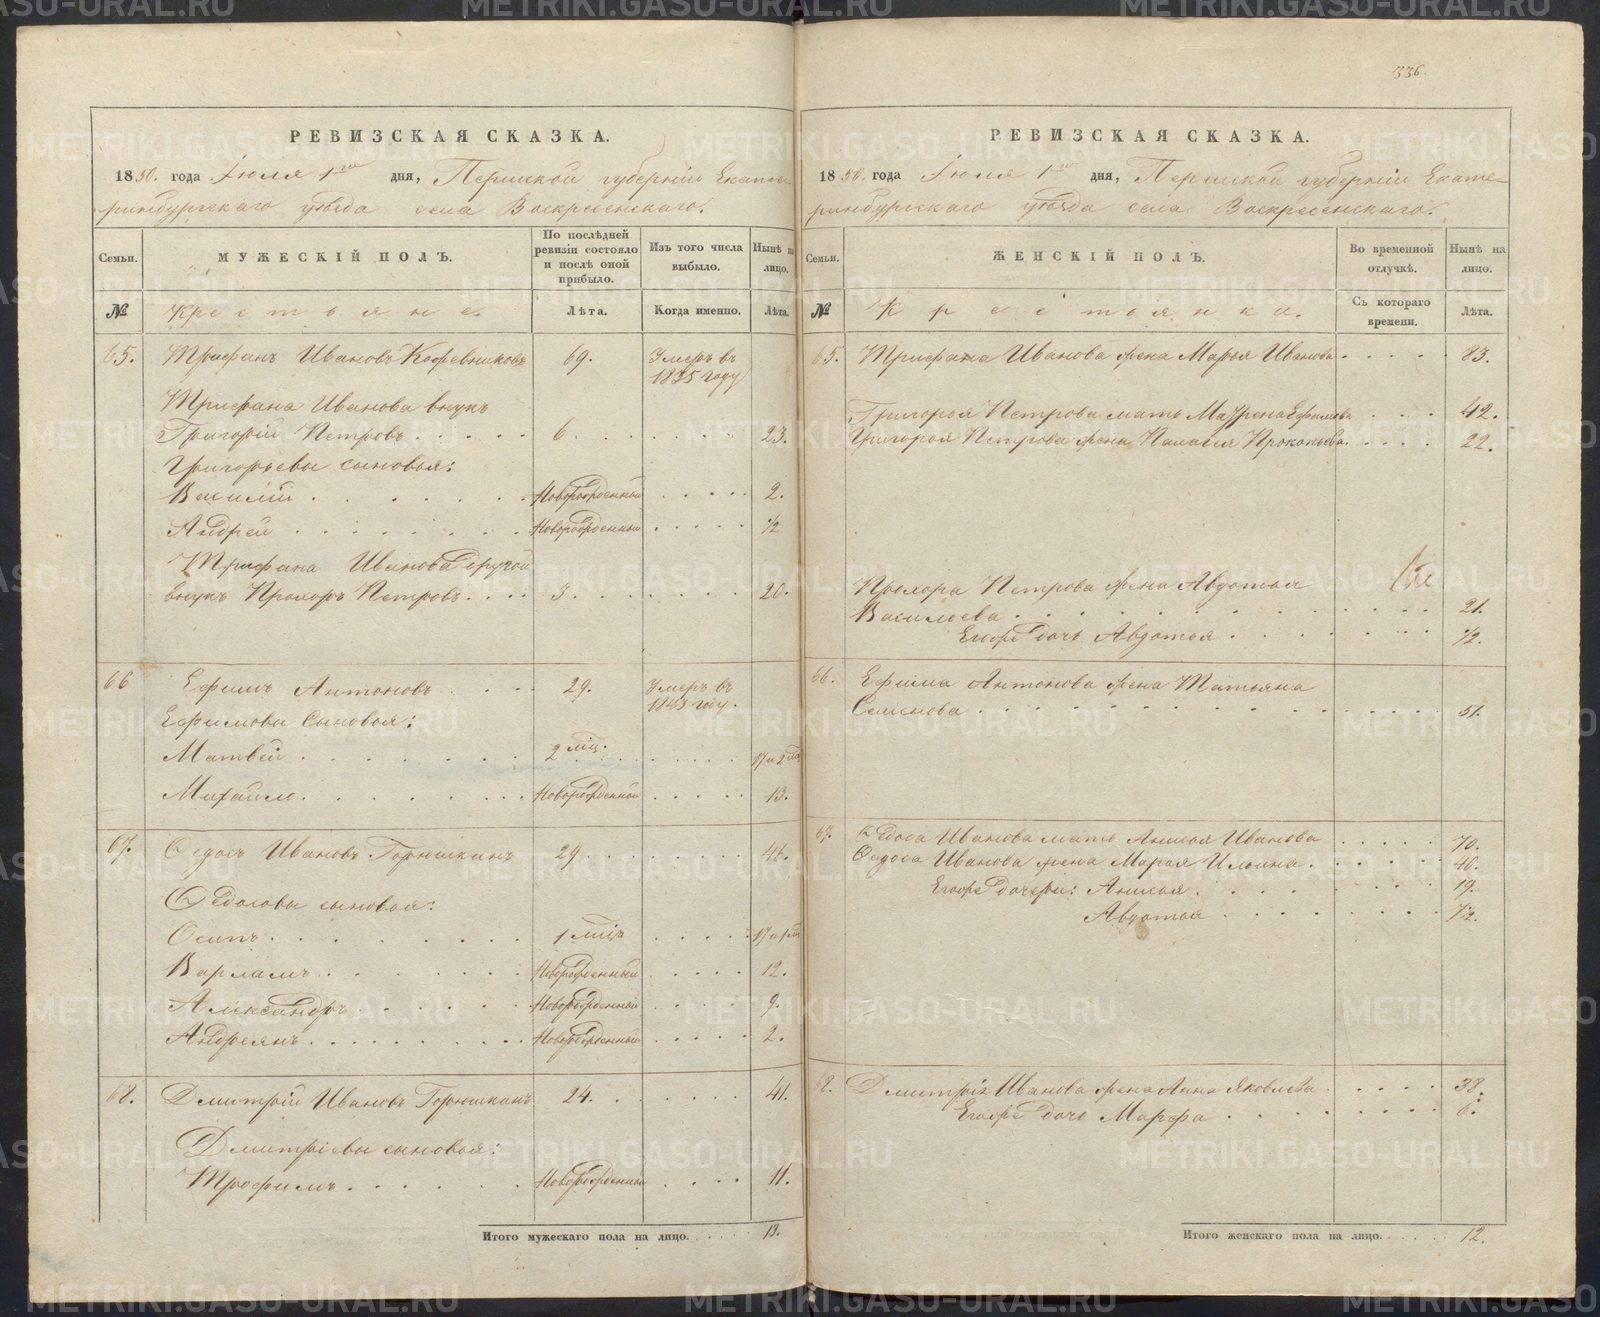 336.
РЕВИЗСКАЯ СКАЗКА.
1850. года Іюля 1го дня, Пермской губерніи Екате-
ринбургскаго уѣзда села Воскресенскаго.
Семьи.
МУЖЕСКІЙ ПОЛЪ.
По послѣдней ревизіи состояло и послѣ оной прибыло.
Изъ того числа выбыло.
Нынѣ на лицо.
№
Крестьяне.
Лѣта.
Когда именно.
Лѣта.
65. Трифанъ Ивановъ Кожевниковъ 69. Умеръ въ
1835 году
Трифана Иванова внукъ
Григорій Петровъ 6. 23.
Григорьевы сыновья:
Василій Новорожденный 2.
Андрей Новорожденный 1/2
Трифана Иванова другой
внукъ Прохоръ Петровъ 3. 20.
66 Ефимъ Антоновъ 29. Умеръ въ
1845 году.
Ефимовы сыновья:
Матвей 2 мѣц. 17 и 2 мѣ
Михайло Новорожденной 13.
67. Федосъ Ивановъ Горюшкинъ 29 46.
Федосовы сыновья:
Осипъ 1 мѣцъ 17 и 1 мѣ
Варламъ Новорожденный 12.
Александръ Новорожденный 9.
Андреянъ Новорожденный 2.
68. Дмитрій Ивановъ Горюшкинъ 24. 41.
Дмитріевы сыновья:
Трофимъ Новорожденный 11.
Итого мужескаго пола на лицо. 13.
РЕВИЗСКАЯ СКАЗКА.
1850. года Іюля 1го дня, Пермской губерніи Екате-
ринбургскаго уѣзда села Воскресенскаго.
Семьи.
ЖЕНСКІЙ ПОЛЪ.
Во временной отлучкѣ.
Нынѣ на лицо.
№
Крестьянки.
Съ котораго времени.
Лѣта.
65. Трифана Иванова жена Марья Иванова 83.
Григорья Петрова мать Маврена Ефимова 42.
Григорья Петрова жена Паласея Прокопьева 22.
Прохора Петрова жена Авдотья
Васильева 21.
Егоже дочь Авдотья 1/2.
66. Ефима Антонова жена Татьяна
Семенова 51.
67. Федоса Иванова мать Анисья Иванова 70.
Федоса Иванова жена Марья Ильина 46.
Егоже дочери: Анисья 19.
Авдотья 7 1/2.
68. Дмитрія Иванова жена Анна Яковлева 38.
Егоже дочь Марфа 6.
Итого женскаго пола на лицо. 12.
METRIKI.GASO-URAL.RU